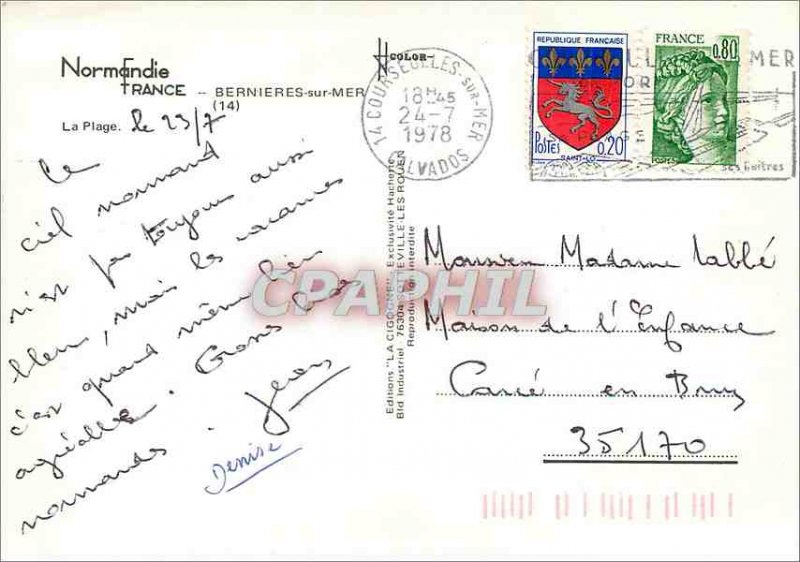 Normandie
FRANCE – BERNIERES-sur-MER
(14)
La Plage.
le 23/7
Le
ciel normand
n'est pas toujours aussi
bleu, mais les vacances
c'est quand même bien
agréable. Gros bises
normandes. Jean
Denise
COLOR
14 COURSEULLES-SUR-MER
18H45
24-7
1978
CALVADOS
REPUBLIQUE FRANÇAISE
POSTES 0,20
SAINT-LO
FRANCE 0,80
MER
ses huîtres
Editions "LA CIGOGNE" Exclusivité Hachette
Bld Industriel 76304 SOTTEVILLE-LES-ROUEN
Reproduction interdite
CPAPHIL
Monsieur Madame Labbé
Maison de l'Enfance
Carcé en Bruz
35170